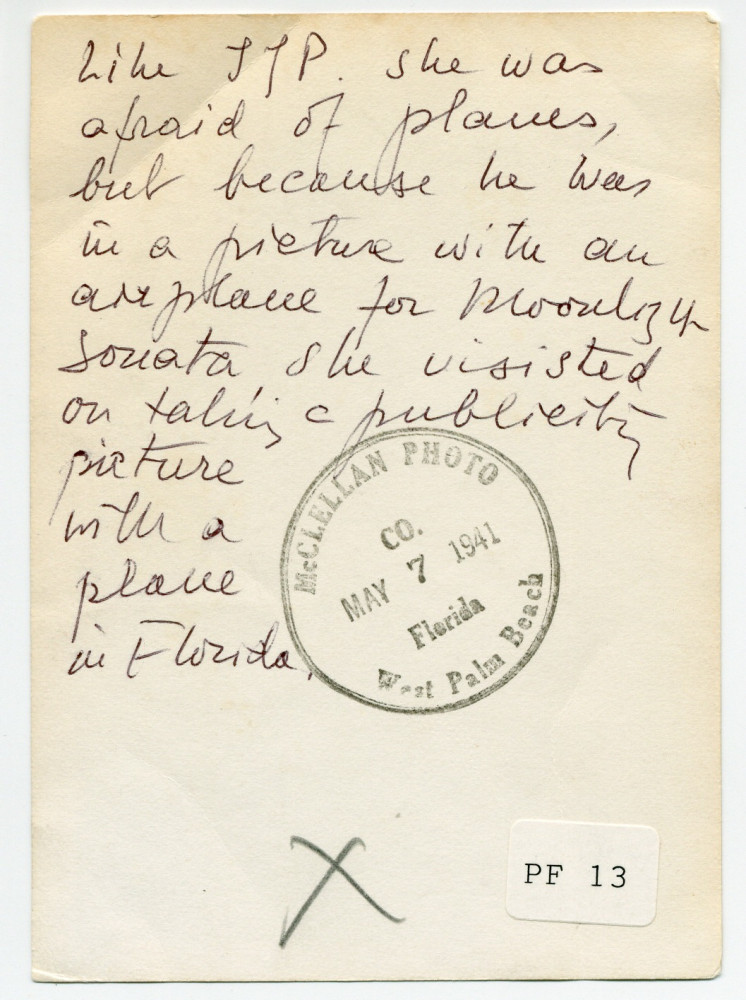 Like IJP. she was
afraid of planes,
but because he was
in a picture with an
airplane for Moonligh
Sonata she visisted
on taking a publicity
picture
with a
plane
in Florida.
McCLELLAN PHOTO
CO.
MAY 7 1941
Florida
West Palm Beach
X
PF 13